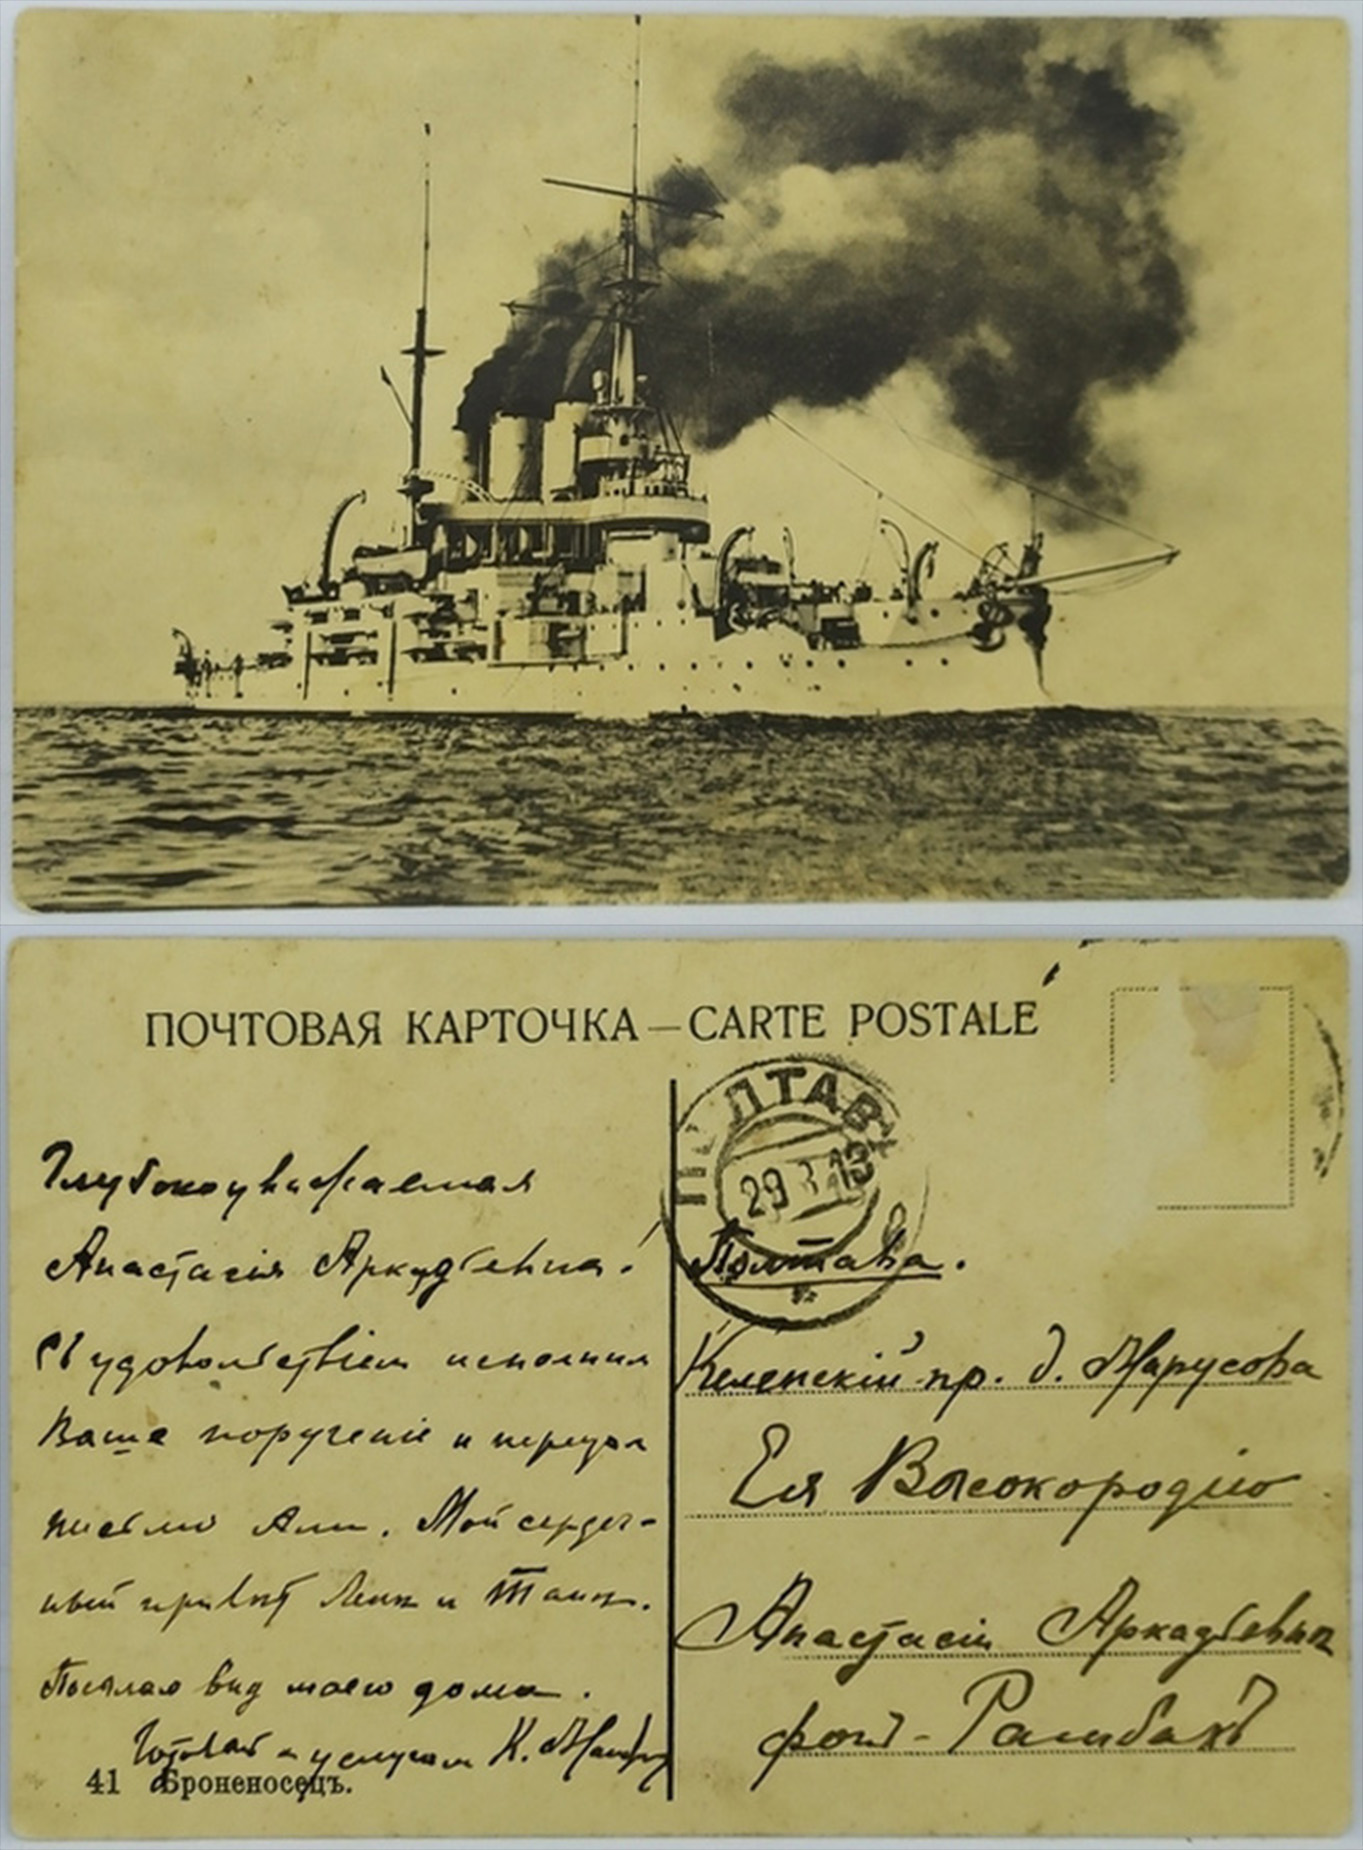 ПОЧТОВАЯ КАРТОЧКА — CARTE POSTALE
ПОЛТАВА
29 13
Глубокоуважаемая
Анастасія Аркадьевна!
Съ удовольствіем исполнил
Ваше порученіе и передал
письмо Ани. Мой сердеч-
ный привѣт Лени и Тани.
Посылаю вид моего дома.
Готовый к услугам К.
41 Броненосецъ.
Полтава.
Келенскій пр. д. Марусова
Ея Высокородію
Анастасіи Аркадьевнѣ
фонъ-Рамбахъ